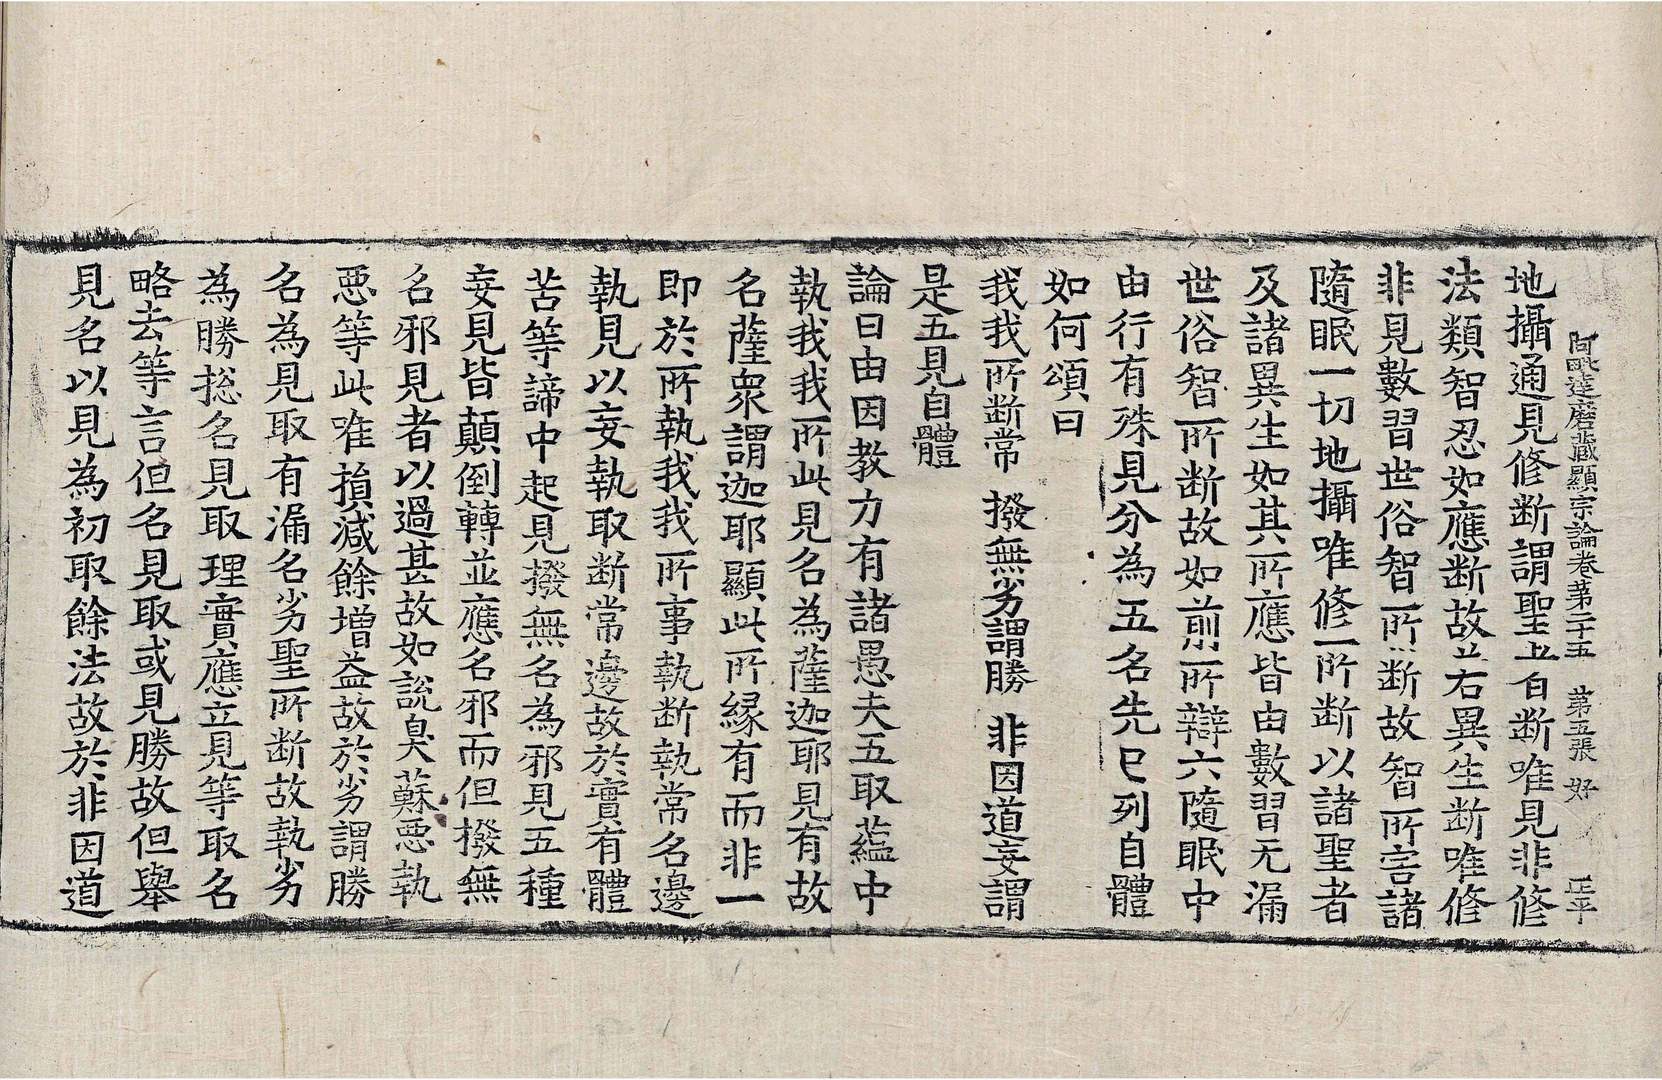 阿毗達磨藏顯宗論卷第二十五 第五張 好 正平
地攝通見修斷謂聖五自斷唯見非修
法類智忍如應斷故若異生斷唯修
非見數習世俗智所斷故智所害諸
隨眠一切地攝唯修所斷以諸聖者
及諸異生如其所應皆由數習无漏
世俗智所斷故如前所辯六隨眠中
由行有殊見分為五名先已列自體
如何頌曰
我我所斷常 撥無劣謂勝 非因道妄謂
是五見自體
論曰由因教力有諸愚夫五取蘊中
執我我所此見名為薩迦耶見有故
名薩衆謂迦耶顯此所緣有而非一
即於所執我我所事執斷執常名邊
執見以妄執取斷常邊故於實有體
苦等諦中起見撥無名為邪見五種
妄見皆顛倒轉並應名邪而但撥無
名邪見者以過甚故如說臭蘇惡執
惡等此唯損減餘增益故於劣謂勝
名為見取有漏名劣聖所斷故執劣
為勝捴名見取理實應立見等取名
略去等言但名見取或見勝故但舉
見名以見為初取餘法故於非因道